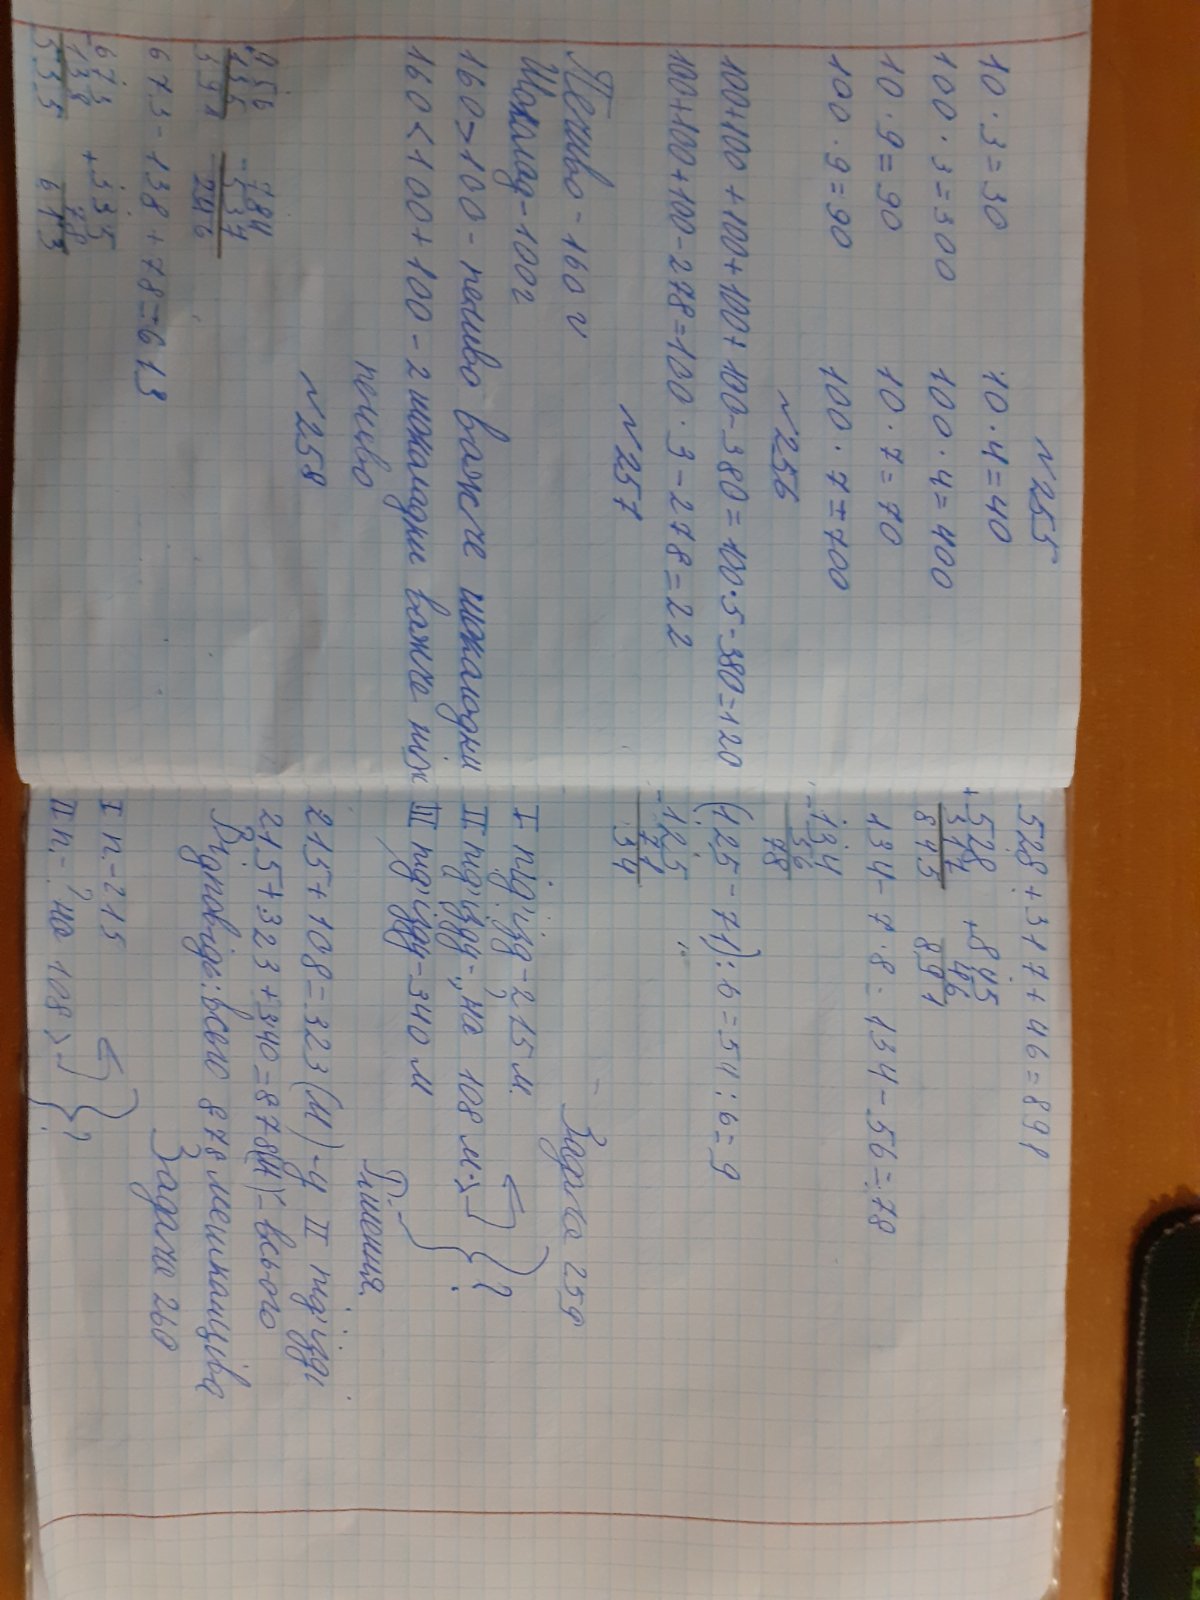 №255
10 · 3 = 30 10 · 4 = 40
100 · 3 = 300 100 · 4 = 400
10 · 9 = 90 10 · 7 = 70
100 · 9 = 90 100 · 7 = 700
№256
100+100+100+100+100-380=100·5-380=120
100+100+100-278=100·3-278=22
№257
Печиво - 160 г
Шоколад - 100г
160>100 - печиво важче шоколадки
160<100+100 - 2 шоколадки важче ніж
печиво
№258
784
246
673-138+78=613
673 +535
138 78
535 613
528+317+46=891
+528 +845
317 46
845 891
134-7·8=134-56=78
-134
56
78
(125-71):6=54:6=9
-125
71
54
Задача 259
I під'їзд-215 м.
II під'їзд-?, на 108 м.> ?
III під'їзд-340 м
Рішення.
215+108=323(м)-у II під'їзді.
215+323+340=878(м)-всього
Відповідь: всего 878 мешканців
Задача 260
I п.-215
II п.-? на 108> ?